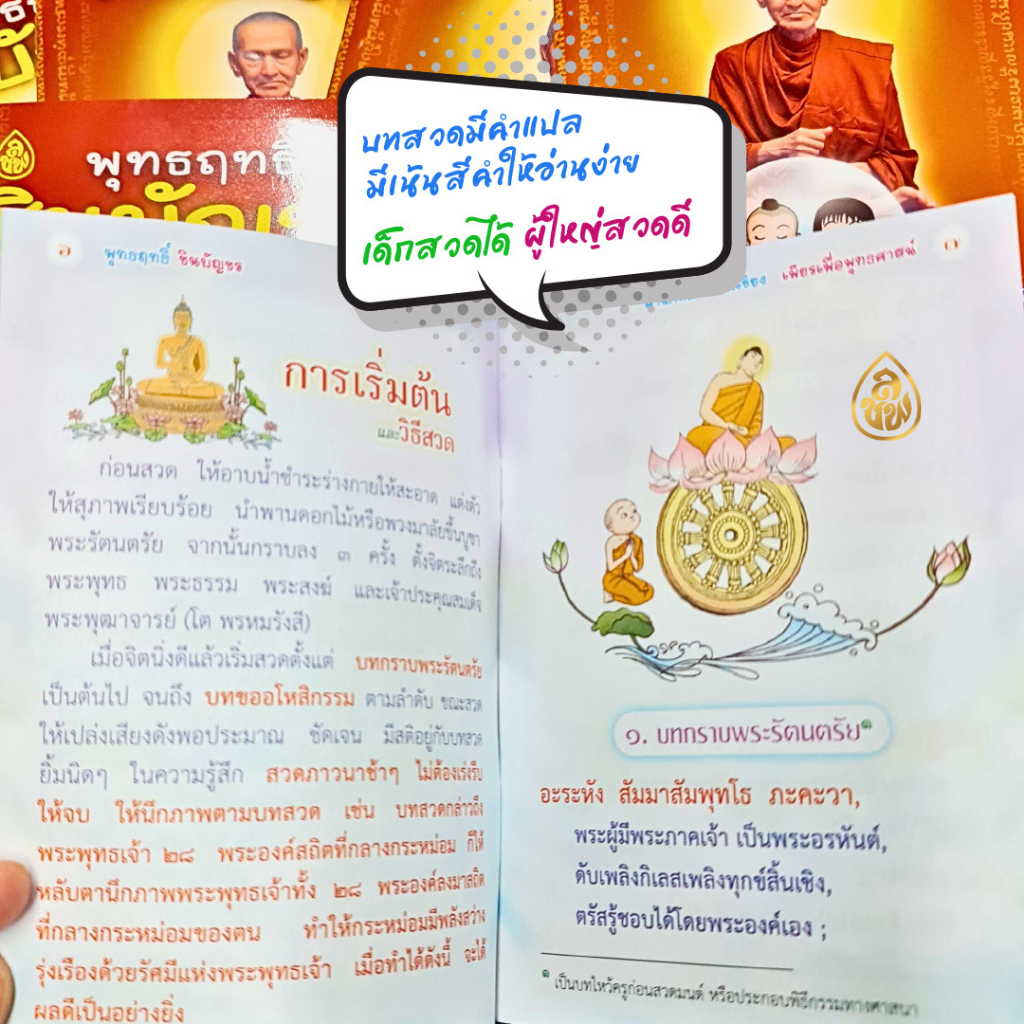 พุทธฤทธิ์
บทสวดมีคำแปล
มีเน้นสีคำให้อ่านง่าย
เด็กสวดได้ ผู้ใหญ่สวดดี
๖ พุทธฤทธิ์ ชินบัญชร
การเริ่มต้น
และวิธีสวด
ก่อนสวด ให้อาบน้ำชำระร่างกายให้สะอาด แต่งตัว
ให้สุภาพเรียบร้อย นำพานดอกไม้หรือพวงมาลัยขึ้นบูชา
พระรัตนตรัย จากนั้นกราบลง ๓ ครั้ง ตั้งจิตระลึกถึง
พระพุทธ พระธรรม พระสงฆ์ และเจ้าประคุณสมเด็จ
พระพุฒาจารย์ (โต พรหมรังสี)
เมื่อจิตนิ่งดีแล้วเริ่มสวดตั้งแต่ บทกราบพระรัตนตรัย
เป็นต้นไป จนถึง บทขออโหสิกรรม ตามลำดับ ขณะสวด
ให้เปล่งเสียงดังพอประมาณ ชัดเจน มีสติอยู่กับบทสวด
ยิ้มนิดๆ ในความรู้สึก สวดภาวนาช้าๆ ไม่ต้องเร่งรีบ
ให้จบ ให้นึกภาพตามบทสวด เช่น บทสวดกล่าวถึง
พระพุทธเจ้า ๒๘ พระองค์สถิตที่กลางกระหม่อม ก็ให้
หลับตานึกภาพพระพุทธเจ้าทั้ง ๒๘ พระองค์ลงมาสถิต
ที่กลางกระหม่อมของตน ทำให้กระหม่อมมีพลังสว่าง
รุ่งเรืองด้วยรัศมีแห่งพระพุทธเจ้า เมื่อทำได้ดังนี้ จะได้
ผลดีเป็นอย่างยิ่ง
เพียรเพื่อพุทธศาสน์ ๗
๑. บทกราบพระรัตนตรัย๑
อะระหัง สัมมาสัมพุทโธ ภะคะวา,
พระผู้มีพระภาคเจ้า เป็นพระอรหันต์,
ดับเพลิงกิเลสเพลิงทุกข์สิ้นเชิง,
ตรัสรู้ชอบได้โดยพระองค์เอง ;
๑ เป็นบทไหว้ครูก่อนสวดมนต์ หรือประกอบพิธีกรรมทางศาสนา